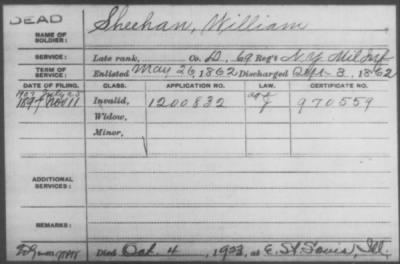 DEAD
NAME OF SOLDIER: Sheehan, William
SERVICE: Late rank, Co. D, 69 Reg't N.Y. Mil Inf
TERM OF SERVICE: Enlisted May 26, 1862 Discharged Sept. 3, 1862
DATE OF FILING. CLASS. APPLICATION NO. LAW. CERTIFICATE NO.
1897 Nov 11 Invalid, 1200832 970559
Widow,
Minor,
ADDITIONAL SERVICES:
REMARKS:
Died Oct. 4, 1923, at E. St. Louis, Ill.